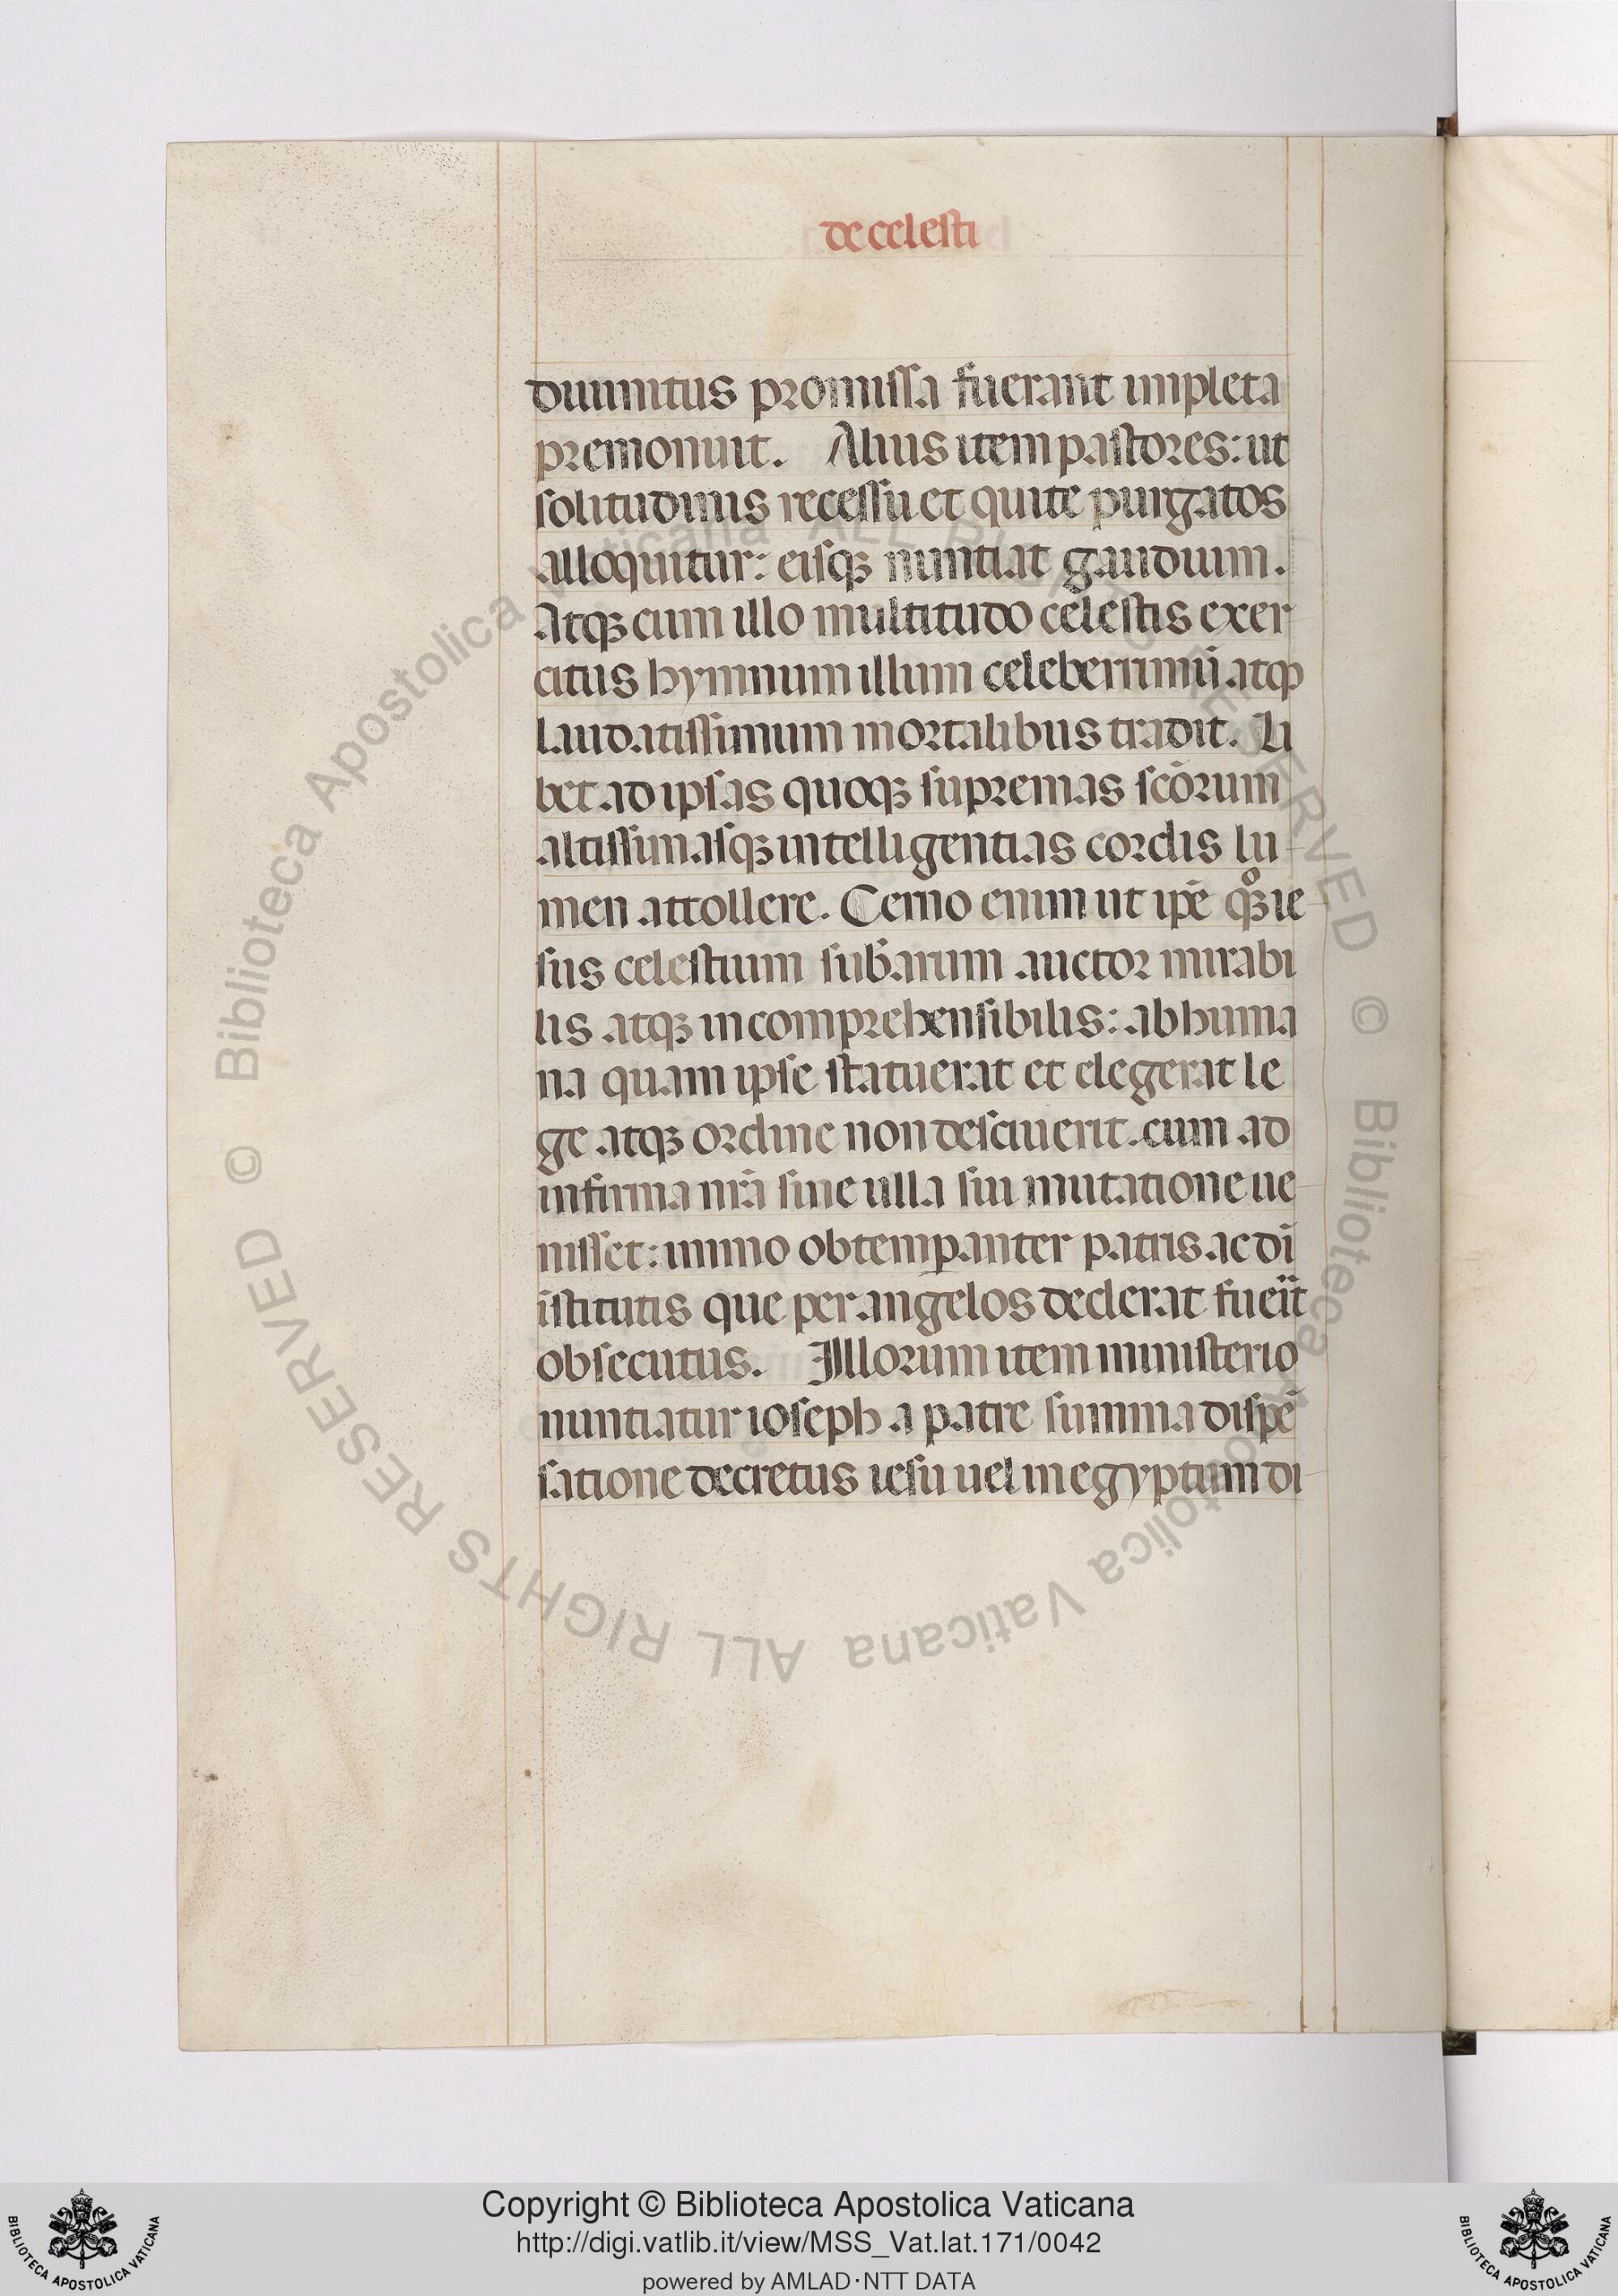 de celesti
diuinitus promissa fuerant impleta
premonuit. Alius item pastores: ut
solitudinis recessu et quiete purgatos
alloquitur: eisqꝫ nuntiat gaudium.
Atqꝫ cum illo multitudo celestis exer
citus hymnum illum celeberrimū atqꝫ
laudatissimum mortalibus tradit. Li
bet ad ipsas quoqꝫ supremas scōrum
altissimasqꝫ intelligentias cordis lu
men attollere. Cerno enim ut ipē qꝫ ie
sus celestium sub̄arum auctor mirabi
lis atqꝫ incomprehensibilis: ab huma
na quam ipse statuerat et elegerat le
ge atqꝫ ordine non desciuerit. cum ad
infirma nr̄a sine ulla sui mutatione ue
nisset: immo obtemꝑanter patris ac dī
īstitutis que per angelos dederat fueīt
obsecutus. Illorum item ministerio
nuntiatur ioseph a patre summa dispē
satione decretus iesu uel in egyptum di
© Biblioteca Apostolica Vaticana ALL RIGHTS RESERVED © Biblioteca Apostolica Vaticana ALL RIGHTS RESERVED
Copyright © Biblioteca Apostolica Vaticana
http://digi.vatlib.it/view/MSS_Vat.lat.171/0042
powered by AMLAD·NTT DATA
BIBLIOTECA APOSTOLICA VATICANA
BIBLIOTECA APOSTOLICA VATICANA